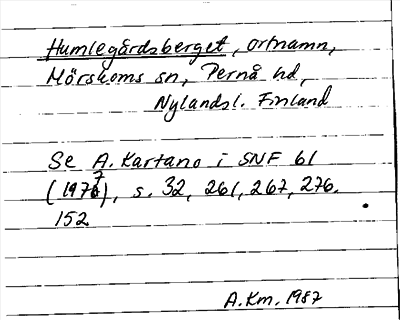 Humlegårdsberget, ortnamn,
Mörskoms sn, Pernå hd,
Nylandsl. Finland
Se A. Kartano i SNF 61
(1977), s. 32, 261, 267, 276.
152
A.Km. 1987